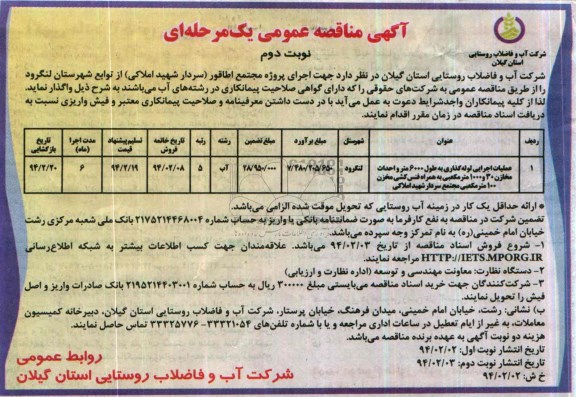 آگهی مناقصه عمومی یک‌مرحله‌ای
نوبت دوم
شرکت آب و فاضلاب روستایی
استان گیلان
شرکت آب و فاضلاب روستایی استان گیلان در نظر دارد جهت اجرای پروژه مجتمع اطاقور (سردار شهید املاکی) از توابع شهرستان لنگرود
را از طریق مناقصه عمومی به شرکت‌های حقوقی را که دارای گواهی صلاحیت پیمانکاری در رشته‌های آب می‌باشند به شرح ذیل واگذار نماید.
لذا از کلیه پیمانکاران واجدشرایط دعوت به عمل می‌آید با در دست داشتن معرفینامه و صلاحیت پیمانکاری معتبر و فیش واریزی نسبت به
دریافت اسناد مناقصه در زمان مقرر اقدام نمایند.
ردیف عنوان شهرستان مبلغ برآورد مبلغ تضمین رشته رتبه تاریخ خاتمه فروش تسلیم پیشنهاد قیمت مدت اجرا (ماه) تاریخ بازگشایی
۱ عملیات اجرایی لوله‌گذاری به طول ۶۰۰۰ متر و احداث مخازن ۳۰ و ۱۰۰۰ مترمکعبی به همراه فنس‌کشی مخزن ۱۰۰ مترمکعبی مجتمع سردار شهید املاکی لنگرود ۷/۴۸۰/۲۰۵/۶۵۰ ۲۸/۹۵۰/۰۰۰ آب ۵ ۹۴/۰۲/۰۸ ۹۴/۲/۱۹ ۶ ۹۴/۲/۲۰
* ارائه حداقل یک کار در زمینه آب روستایی که تحویل موقت شده الزامی می‌باشد.
تضمین شرکت در مناقصه به نفع کارفرما به صورت ضمانتنامه بانکی یا واریز به حساب شماره ۲۱۷۵۲۱۴۴۶۸۰۰۴ بانک ملی شعبه مرکزی رشت
خیابان امام خمینی(ره) به نام تمرکز وجه سپرده می‌باشد.
۱- شروع فروش اسناد مناقصه از تاریخ ۹۴/۰۲/۰۳ می‌باشد. علاقه‌مندان جهت کسب اطلاعات بیشتر به شبکه اطلاع‌رسانی
HTTP://IETS.MPORG.IR مراجعه نمایند.
۲- دستگاه نظارت: معاونت مهندسی و توسعه (اداره نظارت و ارزیابی)
۳- شرکت‌کنندگان جهت خرید اسناد مناقصه می‌بایستی مبلغ ۳۰۰۰۰۰ ریال به حساب شماره ۲۱۹۵۲۱۴۴۰۳۰۰۱ بانک صادرات واریز و اصل
فیش را تحویل نمایند.
ب) نشانی: رشت، خیابان امام خمینی، میدان فرهنگ، خیابان پرستار، شرکت آب و فاضلاب روستایی استان گیلان، دبیرخانه کمیسیون
معاملات، به غیر از ایام تعطیل در ساعات اداری مراجعه و یا با شماره تلفن‌های ۳۳۳۲۱۰۵۴- ۳۳۳۲۵۷۷۶ تماس حاصل نمایند.
هزینه دو نوبت آگهی به عهده برنده مناقصه می‌باشد.
تاریخ انتشار نوبت اول: ۹۴/۰۲/۰۲
تاریخ انتشار نوبت دوم: ۹۴/۰۲/۰۳
خ ش: ۹۴/۰۲/۰۲
روابط عمومی
شرکت آب و فاضلاب روستایی استان گیلان